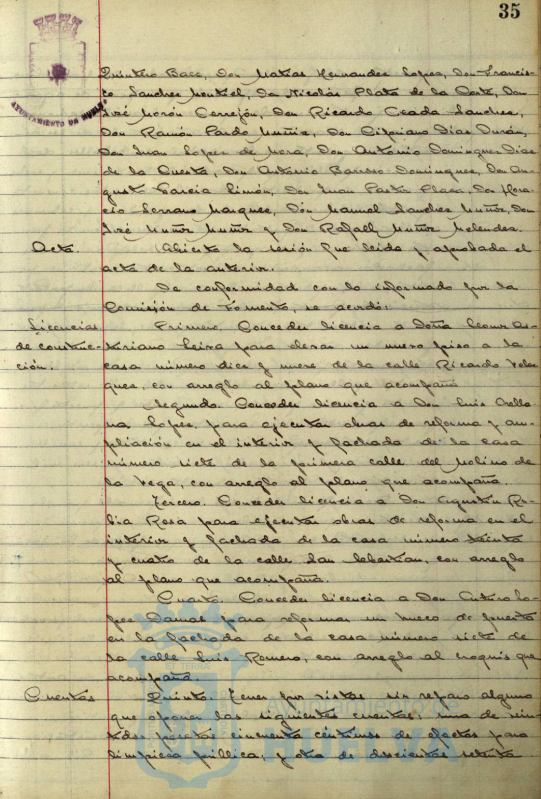 35
AYUNTAMIENTO DE HUELVA
Quintero Baez, Don Matías Hernandez Lopez, Don Francis-
co Sanchez Montiel, Don Nicolás Plata de la Corte, Don
José Morón Cerrejón, Don Ricardo Sanchez,
Don Ramón Pardo Muñiz, Don Cipriano Dias Durán,
Don Juan Lopez de Mora, Don Antonio Dominguez Dias
de la Cuesta, Don Antonio Barroso Dominguez, Don Au-
gusto García Simón, Don Juan Pastor Plaza, Don Hora-
cio Serrano Marquez, Don Manuel Sanchez Muñoz, Don
José Muñoz Muñoz y Don Rafael Muñoz Melendez.
Acta. Abierta la sesión fue leida y aprobada el
acta de la anterior.
De conformidad con lo informado por la
Comisión de Fomento, se acordó:
Licencias Primero. Conceder licencia a Doña Leonor As-
de construc- Leiva para elevar un nuevo piso a la
ción. casa número diez y nueve de la calle Ricardo Velaz-
quez, con arreglo al plano que acompaña
Segundo. Conceder licencia a Don Luis Orella-
na Lopez, para ejecutar obras de reforma y am-
pliación en el interior y fachada de la casa
número siete de la primera calle del Molino de
la Vega, con arreglo al plano que acompaña.
Tercero. Conceder licencia a Don Agustín Ru-
bia Rosa para ejecutar obras de reforma en el
interior y fachada de la casa número treinta
y cuatro de la calle San Sebastian, con arreglo
al plano que acompaña.
Cuarto. Conceder licencia a Don Arturo Lo-
pez Damas para reformar un hueco de puerta
en la fachada de la casa número siete de
la calle Luis Romero, con arreglo al croquis que
acompaña.
Cuentas Quinto. Tener por vistas sin reparo alguno
que oponer las siguientes cuentas: una de vein-
tidos pesetas cincuenta céntimos de efectos para
limpieza pública; y otra de doscientas setenta
Ayuntamiento de
HUELVA